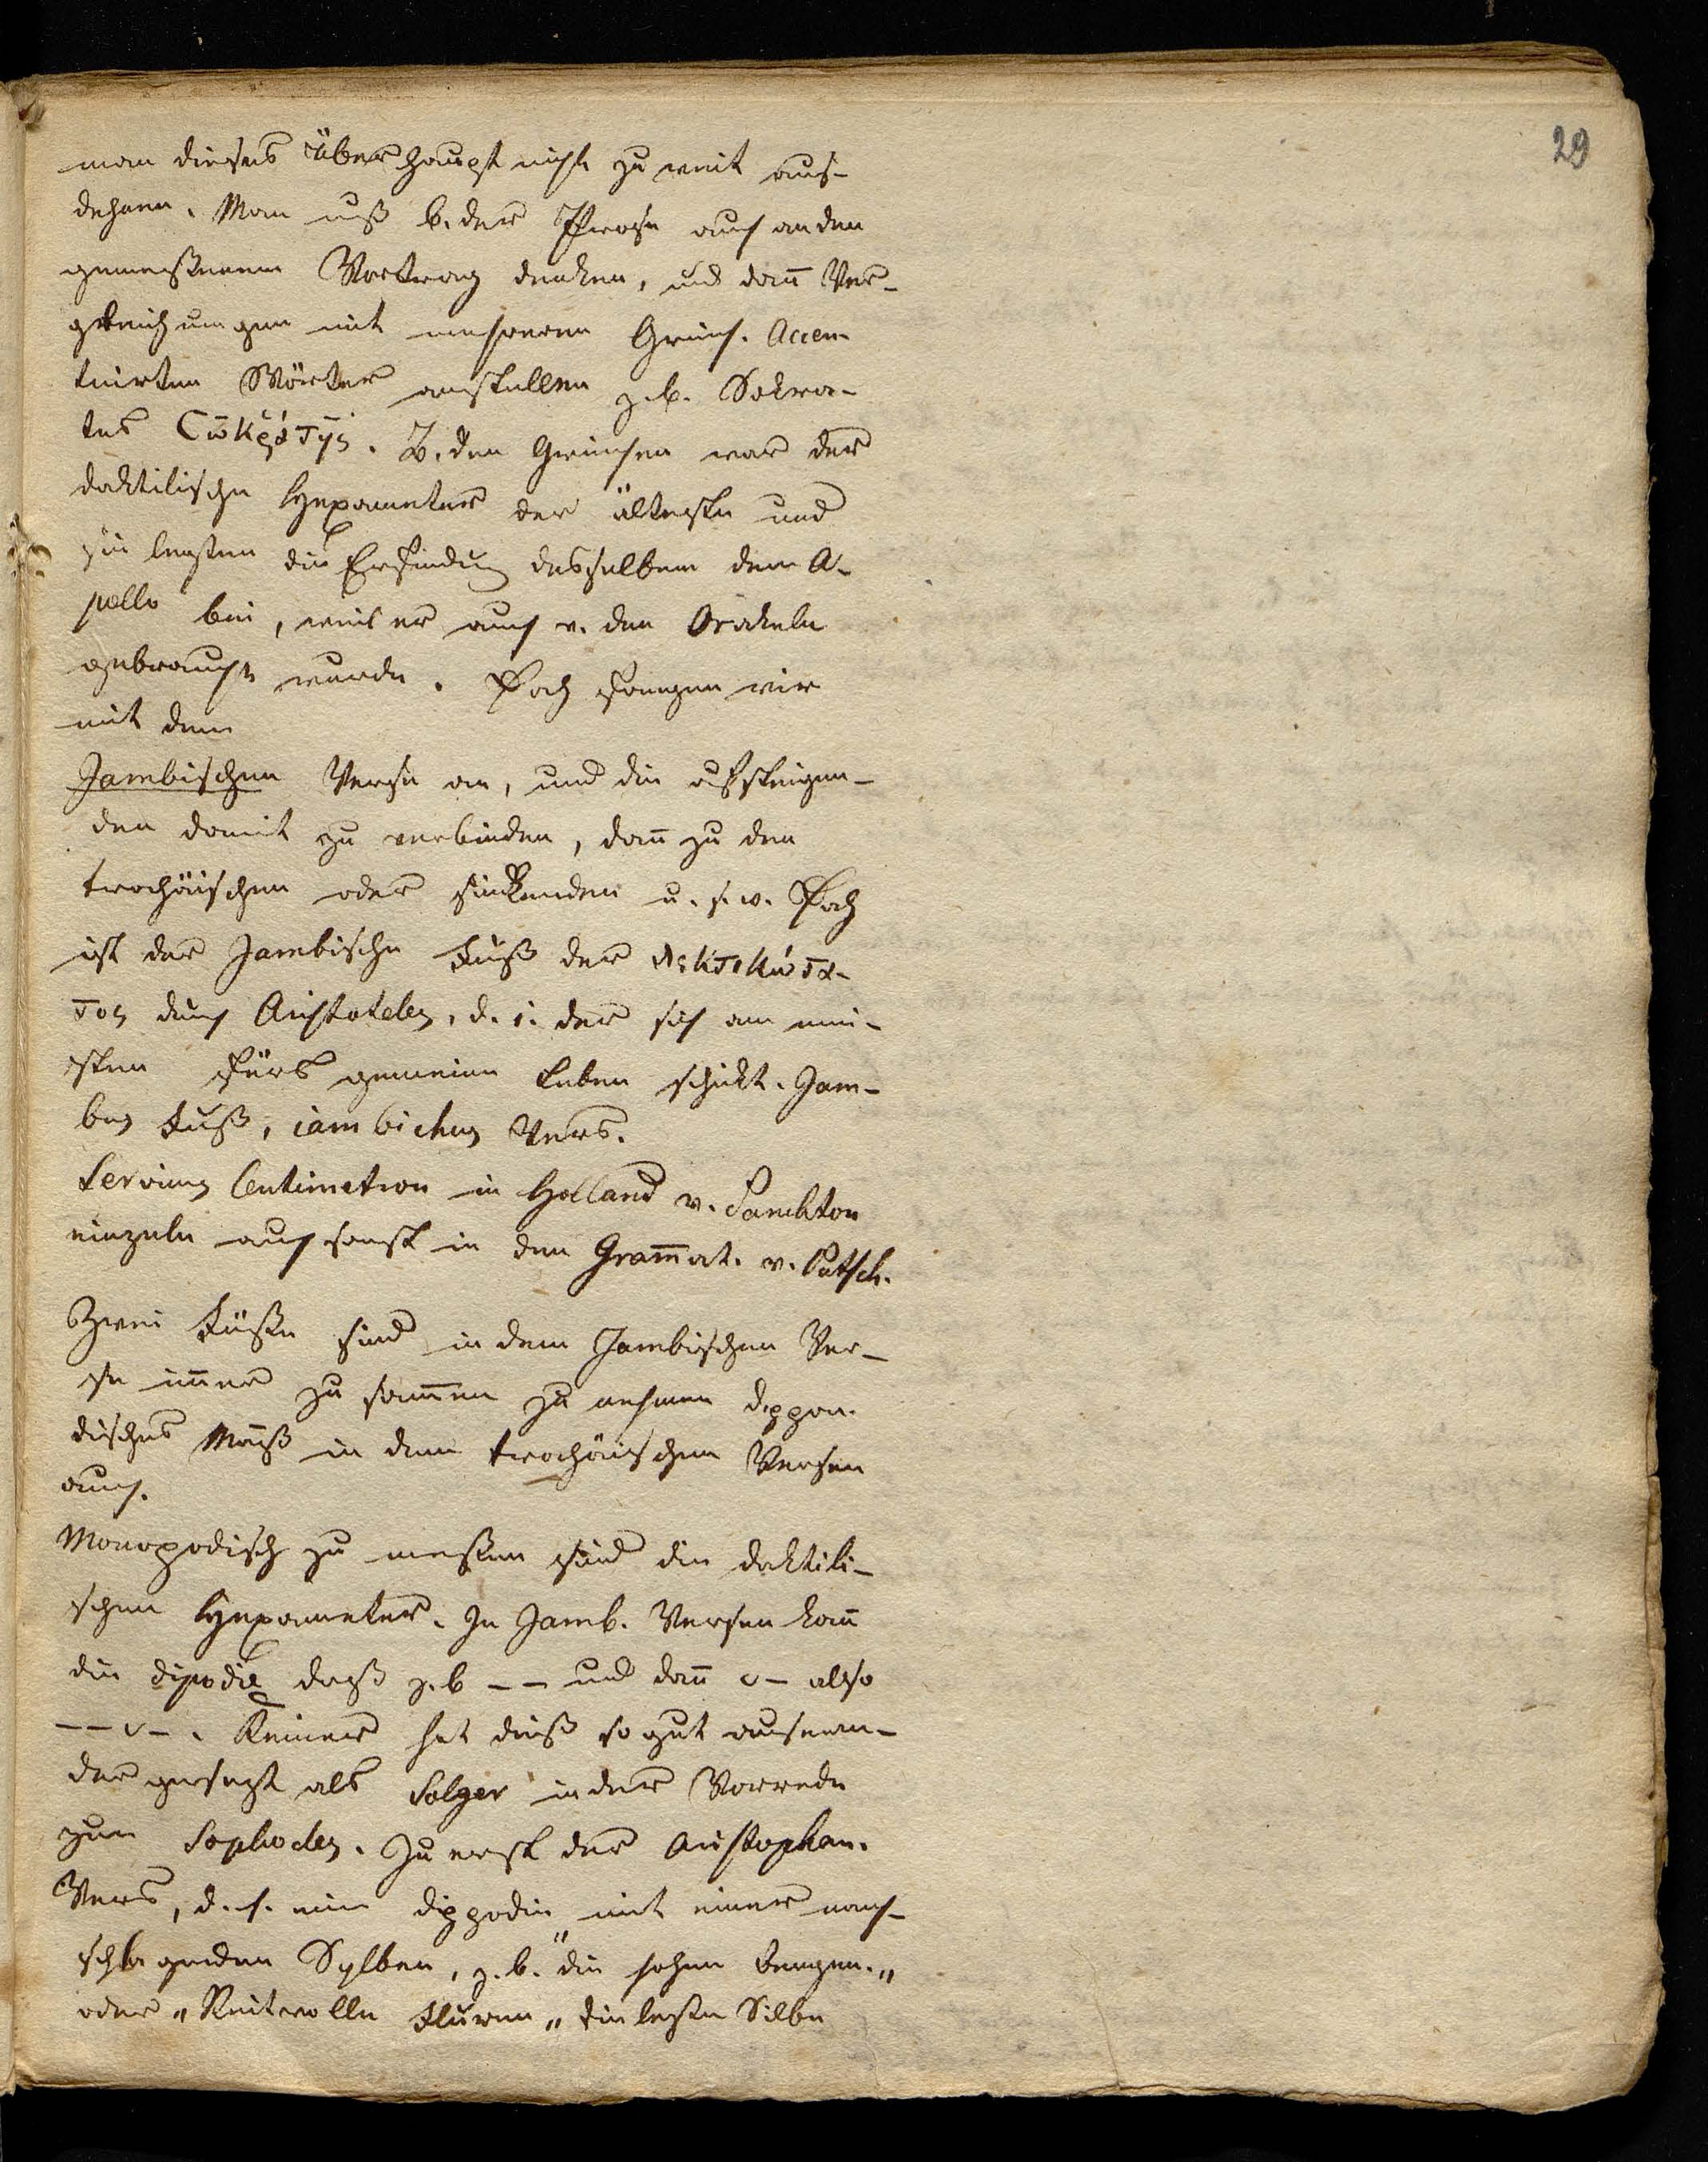 29
man dieses überhaupt nicht zu weit aus-
dehnen. Man muß b. der Prosa auch an den
gemeßenen Vortrag denken, und dañ Ver-
gleichungen mit mehreren Griech. Accen-
tuirten Wörter anstellen z. b. Sokra-
tes Cωκράτης. B. den Griechen war der
daktilische Hexameter der älteste und
sie legten die Erfindung desselben dem A-
pollo bei, weil er auch v. den Orakeln
gebraucht wurde. Doch fangen wir
mit dem
Jambischen Verse an, und die aufsteigen-
den damit zu verbinden, dañ zu den
trochäischen oder sinkenden u. s. w. Doch
ist der Jambische Fuß der λεκτικώτα-
τος durch Aristoteles, d. i. der sich am mei-
sten fürs gemeine Leben schickt. Jam-
bus Fuß, iambichus Vers.
Servius Centimetron in Holland v. Santen
einzeln auch sonst in den Gram̄at. v. Putsch.
Zwei Füße sind in dem Jambischen Ver-
se im̄er zu sam̄en zu nehmen dippo-
disches Maß in den trochäischen Versen
auch.
Monopodisch zu meßen sind die daktili-
schen Hexameter. In Jamb. Versen kañ
die dipodie daß z. b – – und dañ ᴗ – also
– – ᴗ –. Keiner hat dieß so gut ausean-
der gesezt als Solger in der Vorrede
zum Sophocles. Zu erst der Aristophan.
Vers, d. h. eine dippodie mit einer nach-
schlagenden Sylben, z. b. "die hohen Bergen."
oder "Reitvolle Fluren" die lezte Silbe